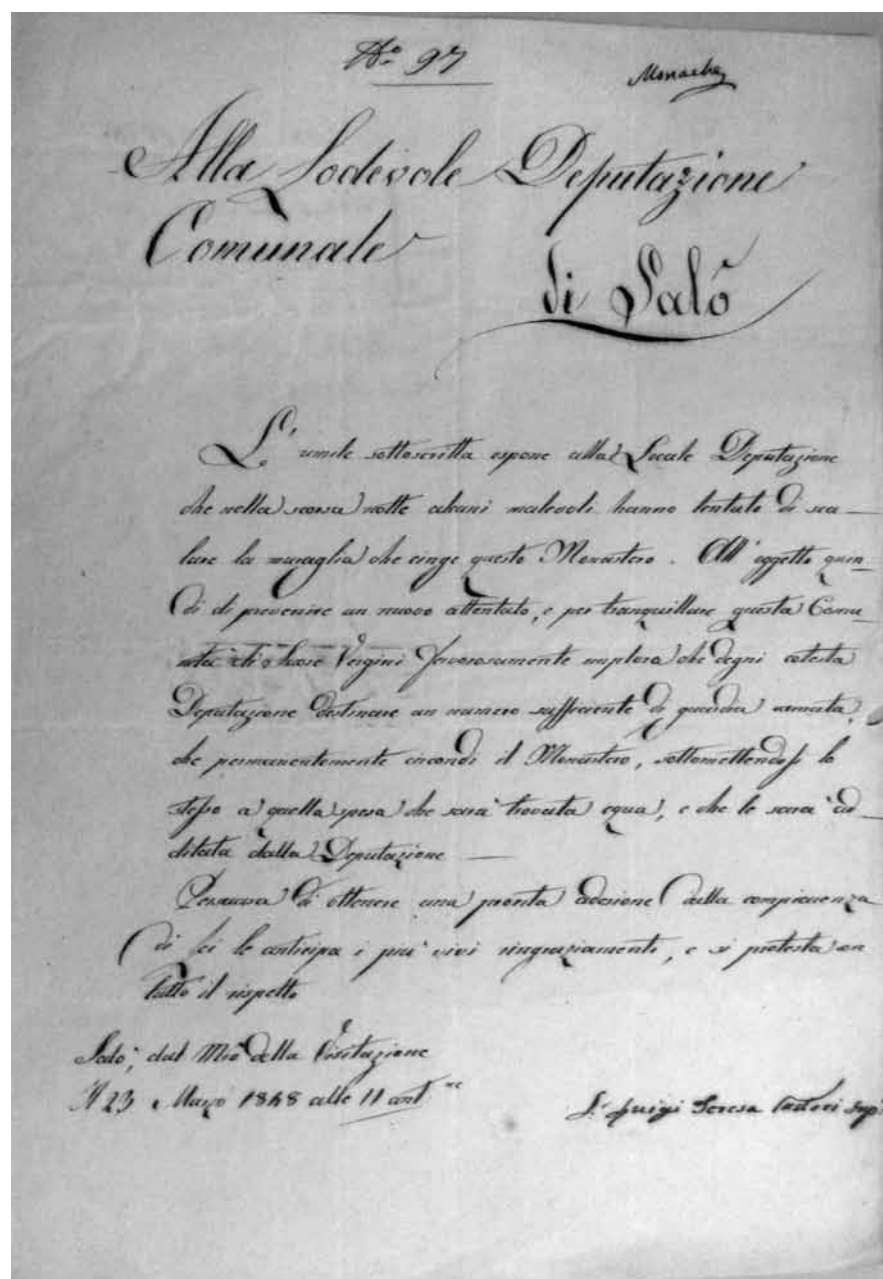 N.o 97
Monache
Alla Lodevole Deputazione
Comunale
di Salò
L'umile sottoscritta espone alla Locale Deputazione
che nella scorsa notte alcuni malevoli hanno tentato di sca-
lare la muraglia che cinge questo Monastero. All'oggetto quin-
di di prevenire un nuovo attentato, e per tranquillare questa Comu-
nità di Suore Vergini fervorosamente implora che degni cotesta
Deputazione destinare un numero sufficiente di guardia armata,
che permanentemente circondi il Monastero, sottomettendosi lo
stesso a quella spesa che sarà trovata equa, e che le sarà ad-
ditata dalla Deputazione —
Persuasa di ottenere una pronta adesione dalla compiacenza
di Lei le anticipa i più vivi ringraziamenti, e si protesta con
tutto il rispetto
Salò, dal Mio della Visitazione
Il 23 Marzo 1848 alle 11 ant.ne
S.r Luigi Teresa sup.